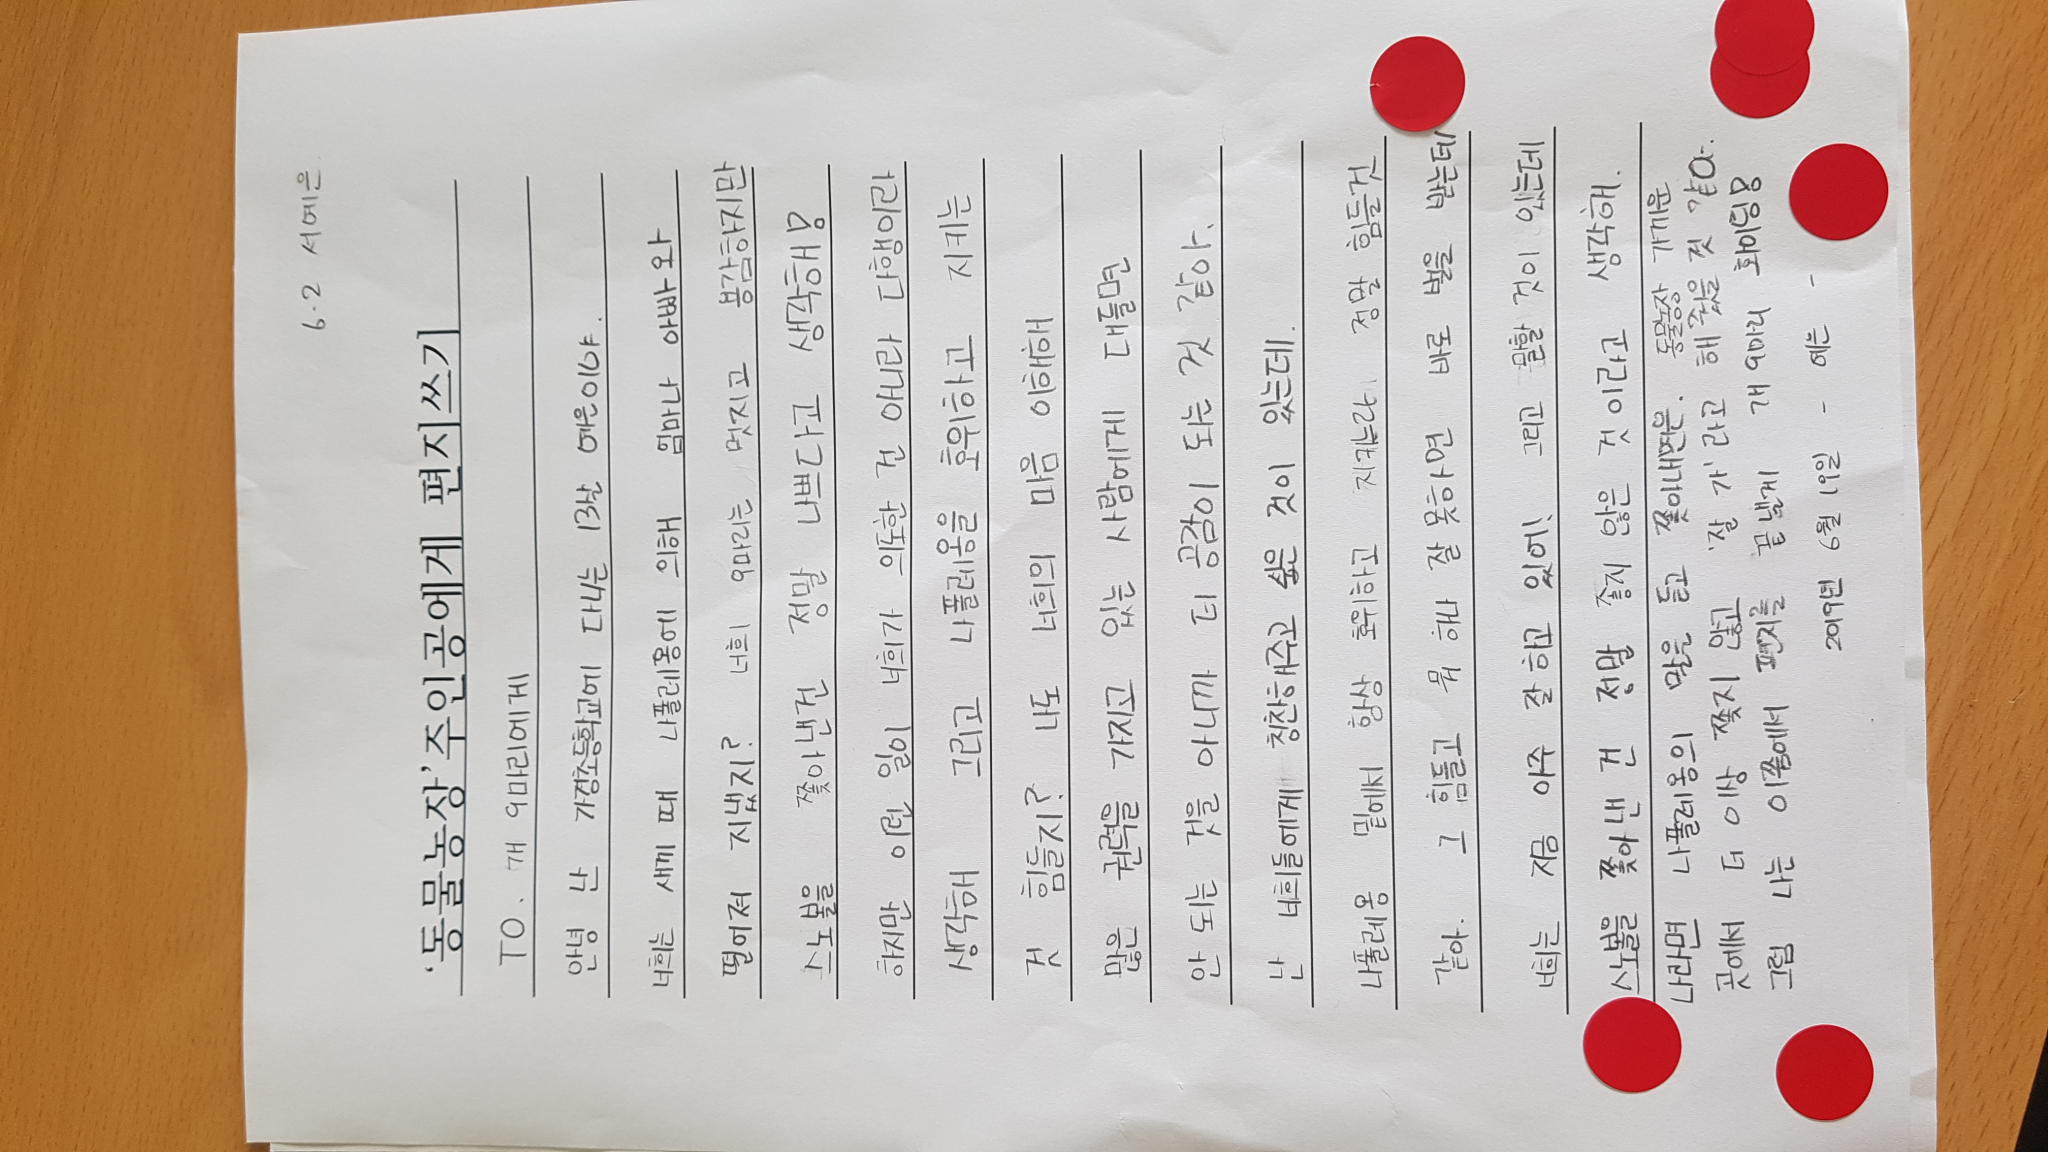 6-2 서예은
'동물농장' 주인공에게 편지쓰기
TO. 개 9마리에게
안녕 난 가경초등학교에 다니는 13살 예은이야.
너희는 새끼 때 나폴레옹에 의해 엄마나 아빠와
떨어져 지냈지? 너희 9마리는 멋지고 용감하지만
스노볼을 쫓아낸건 정말 나쁘다고 생각해
하지만 이런 일이 너희가 의도한 건 아니라 다행이라
생각해 그리고 나폴레옹을 호위하고 지키는
것 힘들지? 나도 너희의 마음 이해해
많은 권력을 가지고 있는 사람에게 대들면
안 되는 것을 아니까 더 공감이 되는 것 같아.
난 너희들에게 칭찬해주고 싶은 것이 있는데.
나폴레옹 밑에서 항상 호위하고 지켜주라 정말 힘들것
같아. 그 힘들고 뭐 해나 잘 못하면 바로 벌을 받는데
너희는 지금 아주 잘 하고 있어. 그리고 말할 것이 있는데
스노볼을 쫓아낸 건 정말 좋지 않은 것 이라고 생각해.
나라면 나폴레옹의 말을 듣고 쫓아내면은. 동물농장 가까운
곳에서 더 이상 쫓지 않고 '잘 가'라고 해 줬을 것 같아.
그럼 나는 이쯤에서 편지를 끝낼게 개 9마리 화이팅!
2019년 6월 1일 - 예은 -